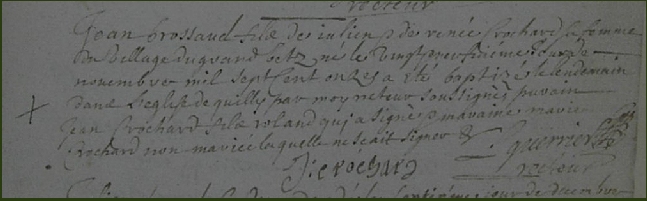 recteur
Jean brossaud fils de iulien & de renée Crochard sa femme
du vellage du grand betz né le vingt neufiéme jour de
novembre mil sept cent onze, a été baptizé le lendemain
dans l'eglise de quilly par moy recteur soussigné parain
Jean Crochard fils roland qui a signé maraine marie
Crochard non mariee laquelle ne scait signer &
J: crochard
guerrier
recteur
jour de decembre